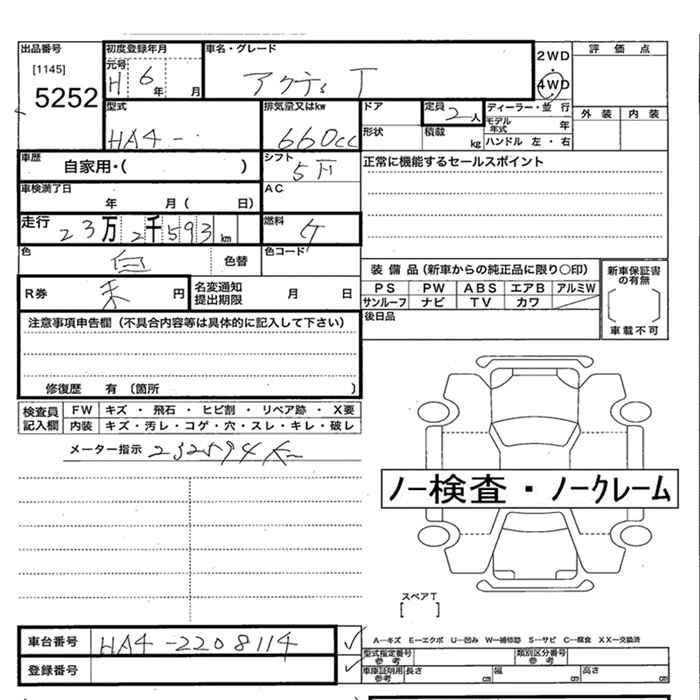 出品番号 初度登録年月 車名・グレード 2WD 評価点
[1145] 元号 H 6年 月 アクティ T ・
5252 4WD
型式 排気量又はkw ドア 定員 2人 ディーラー・並 行 外装 内装
HA4- 660cc 形状 積載 kg モデル年式 年
ハンドル 左・右
車歴 自家用・( ) シフト 5F 正常に機能するセールスポイント
車検満了日 年 月( 日) AC
走行 23万2千593km 燃料 ケ
色 白 色替 色コード 装備品(新車からの純正品に限り○印) 新車保証書の有無
R券 未 円 名変通知提出期限 月 日 PS PW ABS エアB アルミW 〔 〕
サンルーフ ナビ TV カワ 車載不可
注意事項申告欄(不具合内容等は具体的に記入して下さい) 後日品
修復歴 有 〔箇所 〕
検査員記入欄 FW キズ ・ 飛石 ・ ヒビ割 ・ リペア跡 ・ X要
内装 キズ・汚レ・コゲ・穴・スレ・キレ・破レ
メーター指示 232594 K
ノー検査・ノークレーム
スペアT
[ ]
車台番号 HA4-2208114 A―キズ E―エクボ U―凹み W―補修跡 S―サビ C―腐食 XX―交換済
型式指定番号 参考 類別区分番号 参考
登録番号 車庫証明用 参考 長さ cm 幅 cm 高さ cm